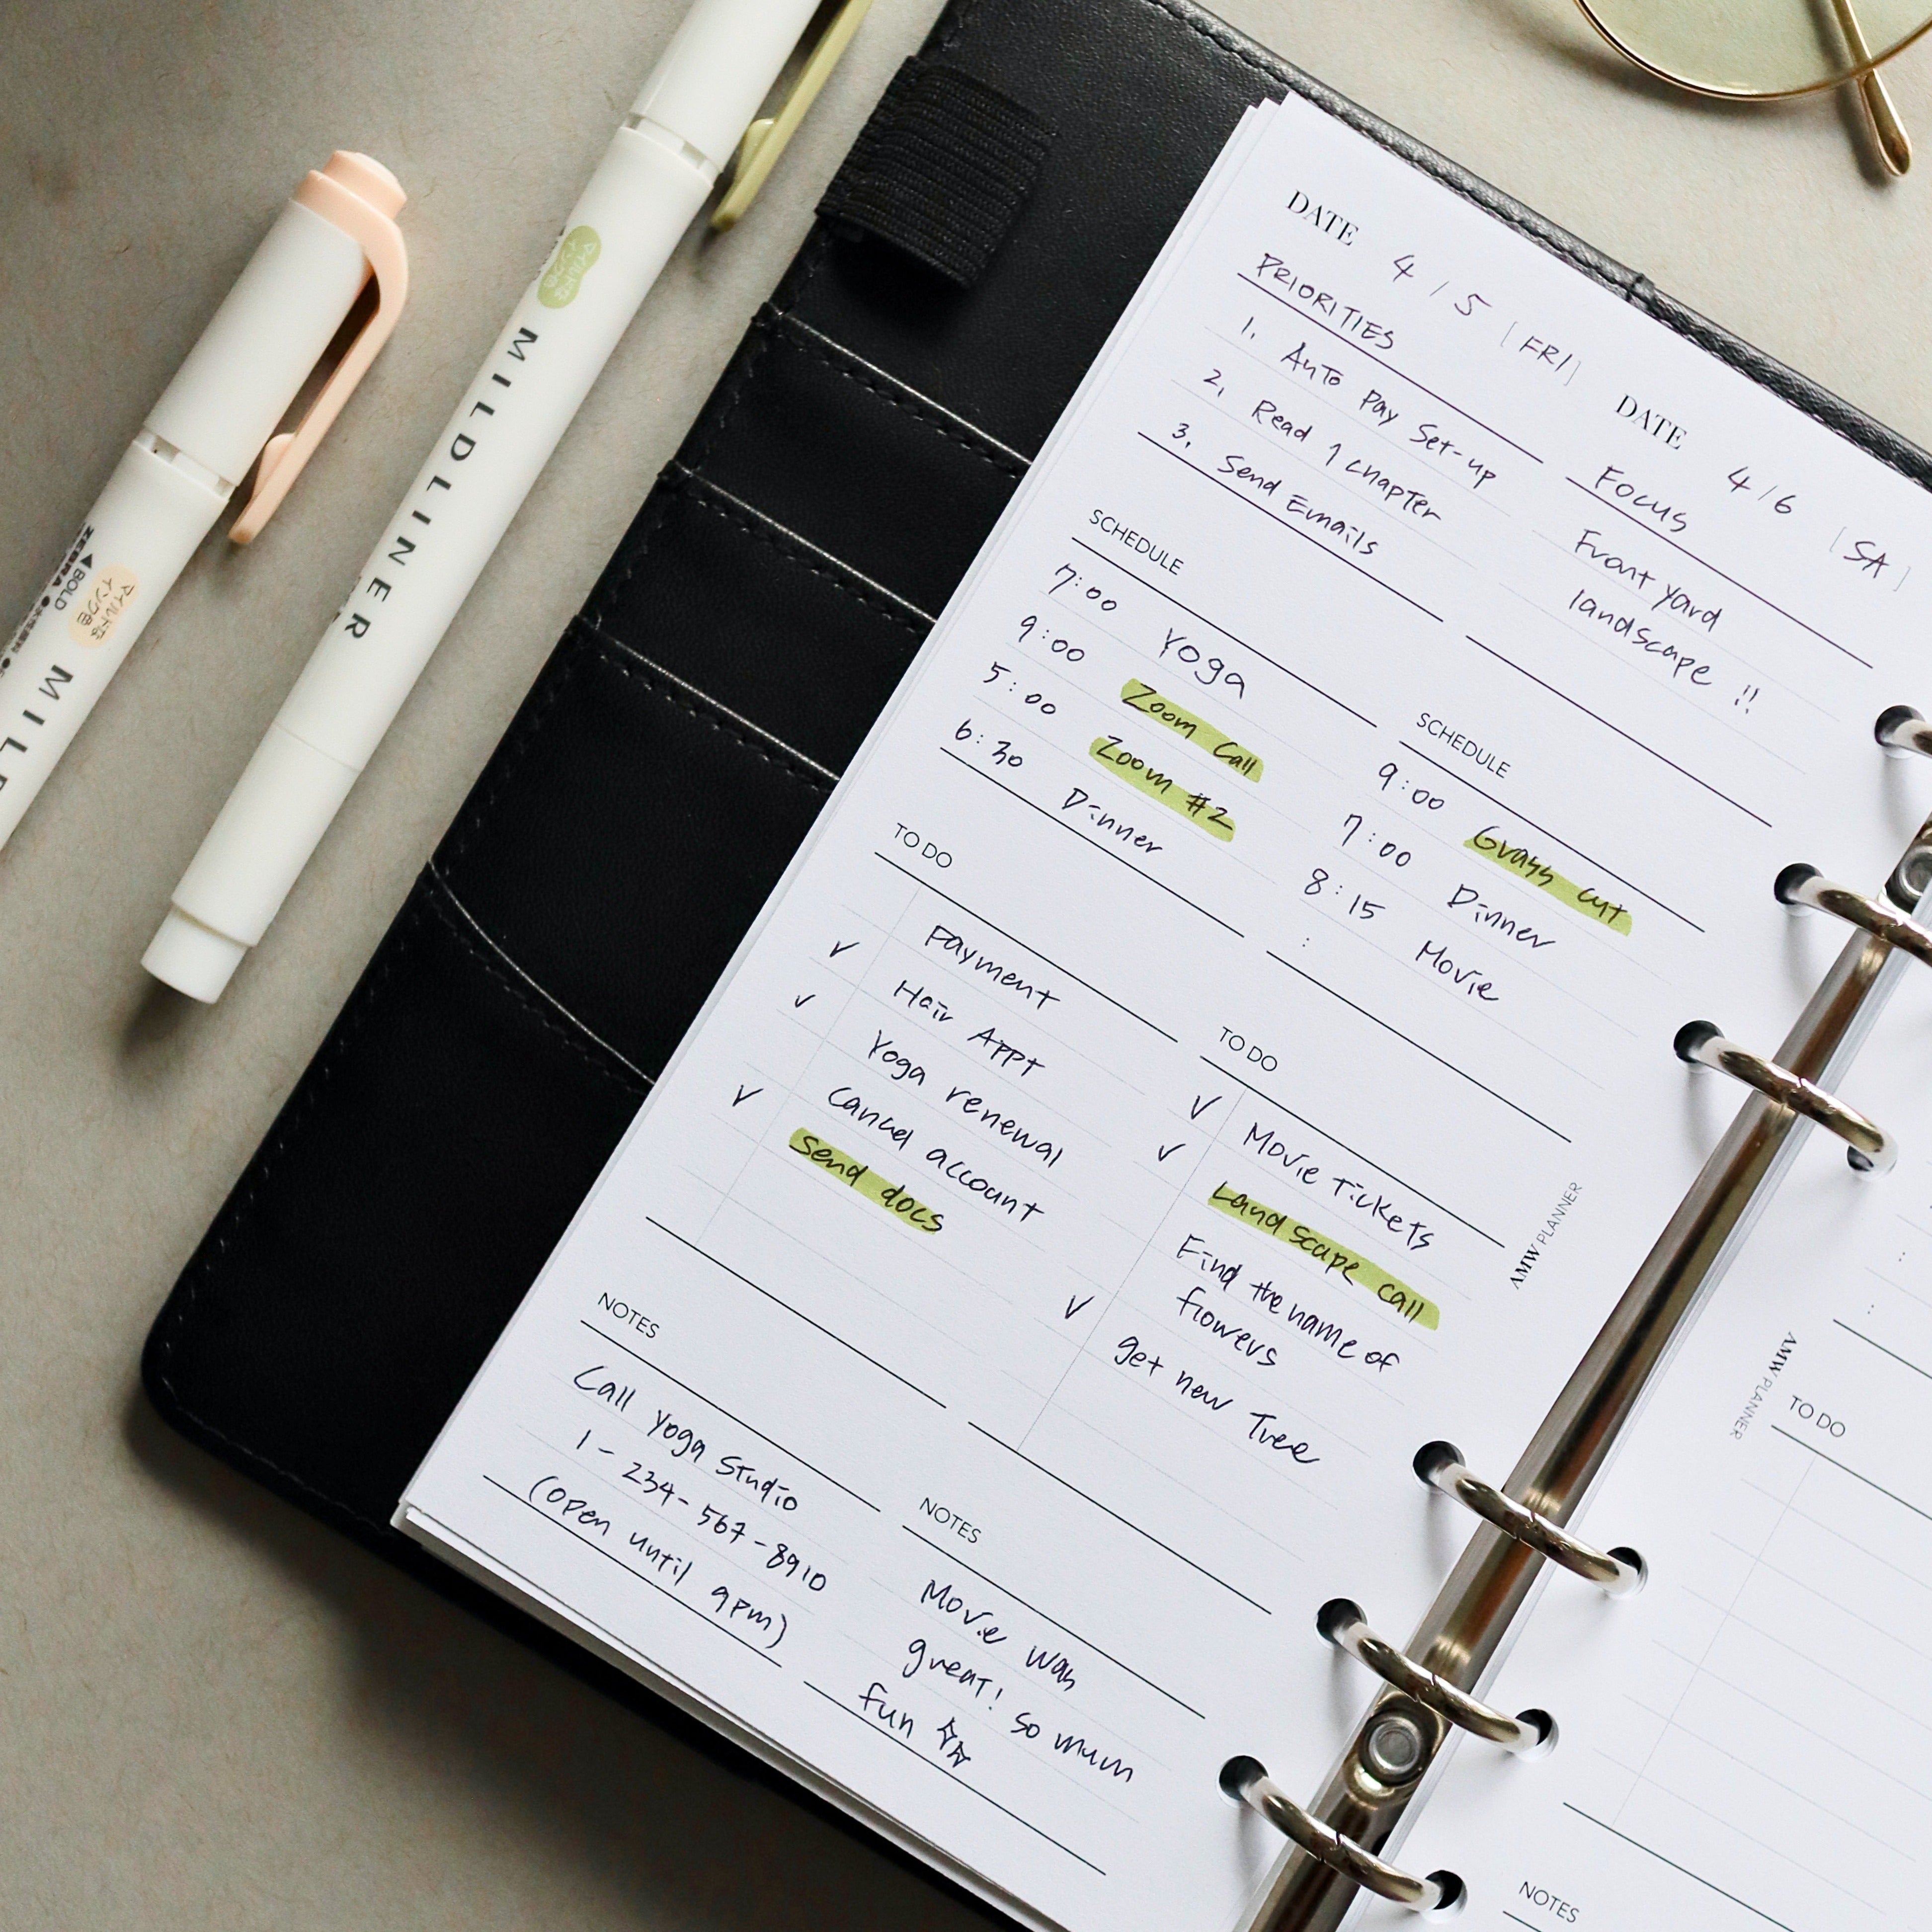 DATE 4/5 [FRI]
PRIORITIES
1. Auto Pay Set-up
2. Read 1 chapter
3. Send Emails
SCHEDULE
7:00 Yoga
9:00 Zoom Call
5:00 Zoom #2
6:30 Dinner
TO DO
Payment
✓ Hair Appt
✓ Yoga renewal
Cancel account
✓ Send docs
NOTES
Call Yoga Studio
1-234-567-8910
(open until 9pm)
DATE 4/6 [SA]
Focus
Front Yard
landscape !!
SCHEDULE
9:00 Grass cut
7:00 Dinner
8:15 Movie
:
TO DO
✓ Movie Tickets
✓ Landscape call
Find the name of
flowers
✓ get new Tree
NOTES
Movie was
great! so much
fun
AMW PLANNER
AMW PLANNER
:
:
TO DO
NOTES
MILDLINER
マイルドな
インク色
ZEBRA
BOLD
マイルドな
インク色